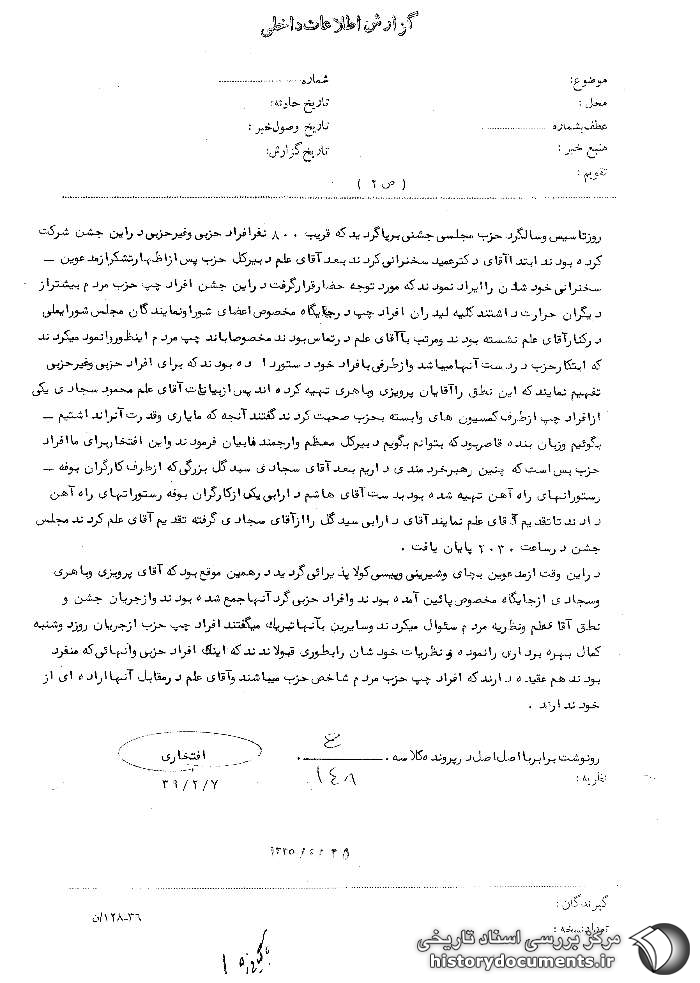 گزارش اطلاعات داخلی
موضوع:
شماره
محل :
تاریخ حادثه:
عطف بشماره
تاریخ وصول خبر :
منبع خبر :
تاریخ گزارش:
تقویم :
( ص ۲ )
روز تاسیس و سالگرد حزب مجلسی جشنی برپا گردید که قریب ۸۰۰ نفر افراد حزبی و غیرحزبی در این جشن شرکت
کرده بودند ابتدا آقای دکتر عمید سخنرانی کردند بعد آقای علم دبیر کل حزب پس از اظهار تشکر از مدعوین –
سخنرانی خودشان را ایراد نمودند که مورد توجه حضار قرار گرفت در این جشن افراد چپ حزب مردم بیشتر از
دیگران حرارت داشتند کلیه لیدران افراد چپ در جایگاه مخصوص اعضای شورا و نمایندگان مجلس شورایملی
در کنار آقای علم نشسته بودند و مرتب با آقای علم در تماس بودند مخصوصا باند چپ مردم اینطور وانمود میکردند
که ابتکار حزب در دست آنها میباشد و از طرفی بافراد خود دستور داده بودند که برای افراد حزبی و غیرحزبی
تفهیم نمایند که این نطق را آقایان پرویزی و باهری تهیه کرده اند پس از بیانات آقای علم محمود سجادی یکی
از افراد چپ از طرف کمسیون های وابسته بحزب صحبت کردند گفتند آنچه که ما یارای و قدرت آنرا نداشتیم –
بگوئیم و زبان بنده قاصر بود که بتوانم بگویم دبیر کل معظم و ارجمند فابیان فرمودند و این افتخار برای ما افراد
حزب بس است که چنین رهبر خردمندی داریم بعد آقای سجادی سبد گل بزرگی که از طرف کارگران بوفه –
رستورانهای راه آهن تهیه شده بود بدست آقای هاشم دارابی یک از کارگران بوفه رستورانهای راه آهن
دادند تا تقدیم آقای علم نمایند آقای دارابی سبد گل را از آقای سجادی گرفته تقدیم آقای علم کردند مجلس
جشن در ساعت ۲۰۳۰ پایان یافت .
در این وقت از مدعوین بچای و شیرینی و پپسی کولا پذیرائی گردید در همین موقع بود که آقای پرویزی و باهری
و سجادی از جایگاه مخصوص پائین آمده بودند و افراد حزبی گرد آنها جمع شده بودند و از جریان جشن و
نطق آقا علم و نظریه مردم سئوال میکردند و سایرین بآنها تبریک میگفتند افراد چپ حزب از جریان روز دوشنبه
کمال بهره برداری را نموده و نظریات خودشان را بطوری قبولاندند که اینک افراد حزبی و آنهائی که منفرد
بودند هم عقیده دارند که افراد چپ حزب مردم شاخص حزب میباشند و آقای علم در مقابل آنها اراده ای از
خود ندارند .
رونوشت برابر با اصل اصل در پرونده کلاسه
۱۴۸
افتخاری
۳۹/۲/۷
نظریه :
گیرندگان :
تعداد نسخه :
۳۶-۱۲۸/ن
مرکز بررسی اسناد تاریخی
historydocuments.ir